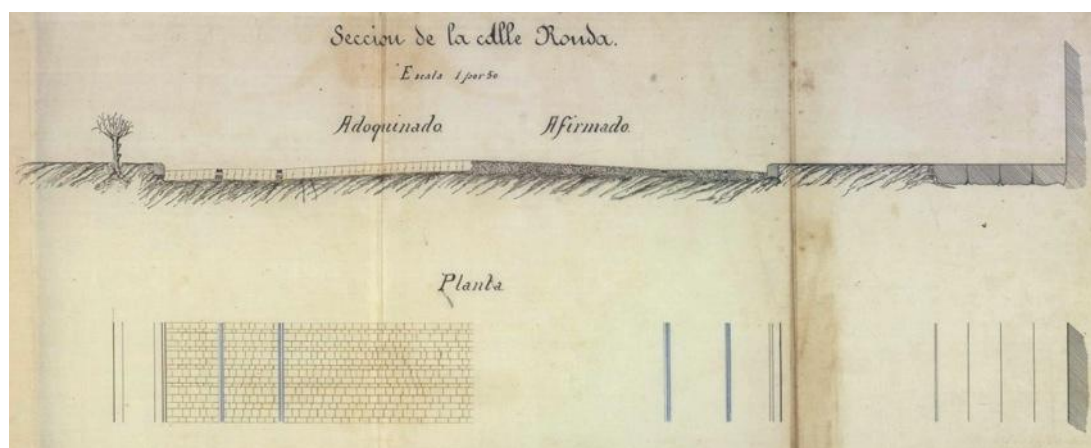 Seccion de la calle Ronda.
Escala 1 por 50
Adoquinado Afirmado.
Planta